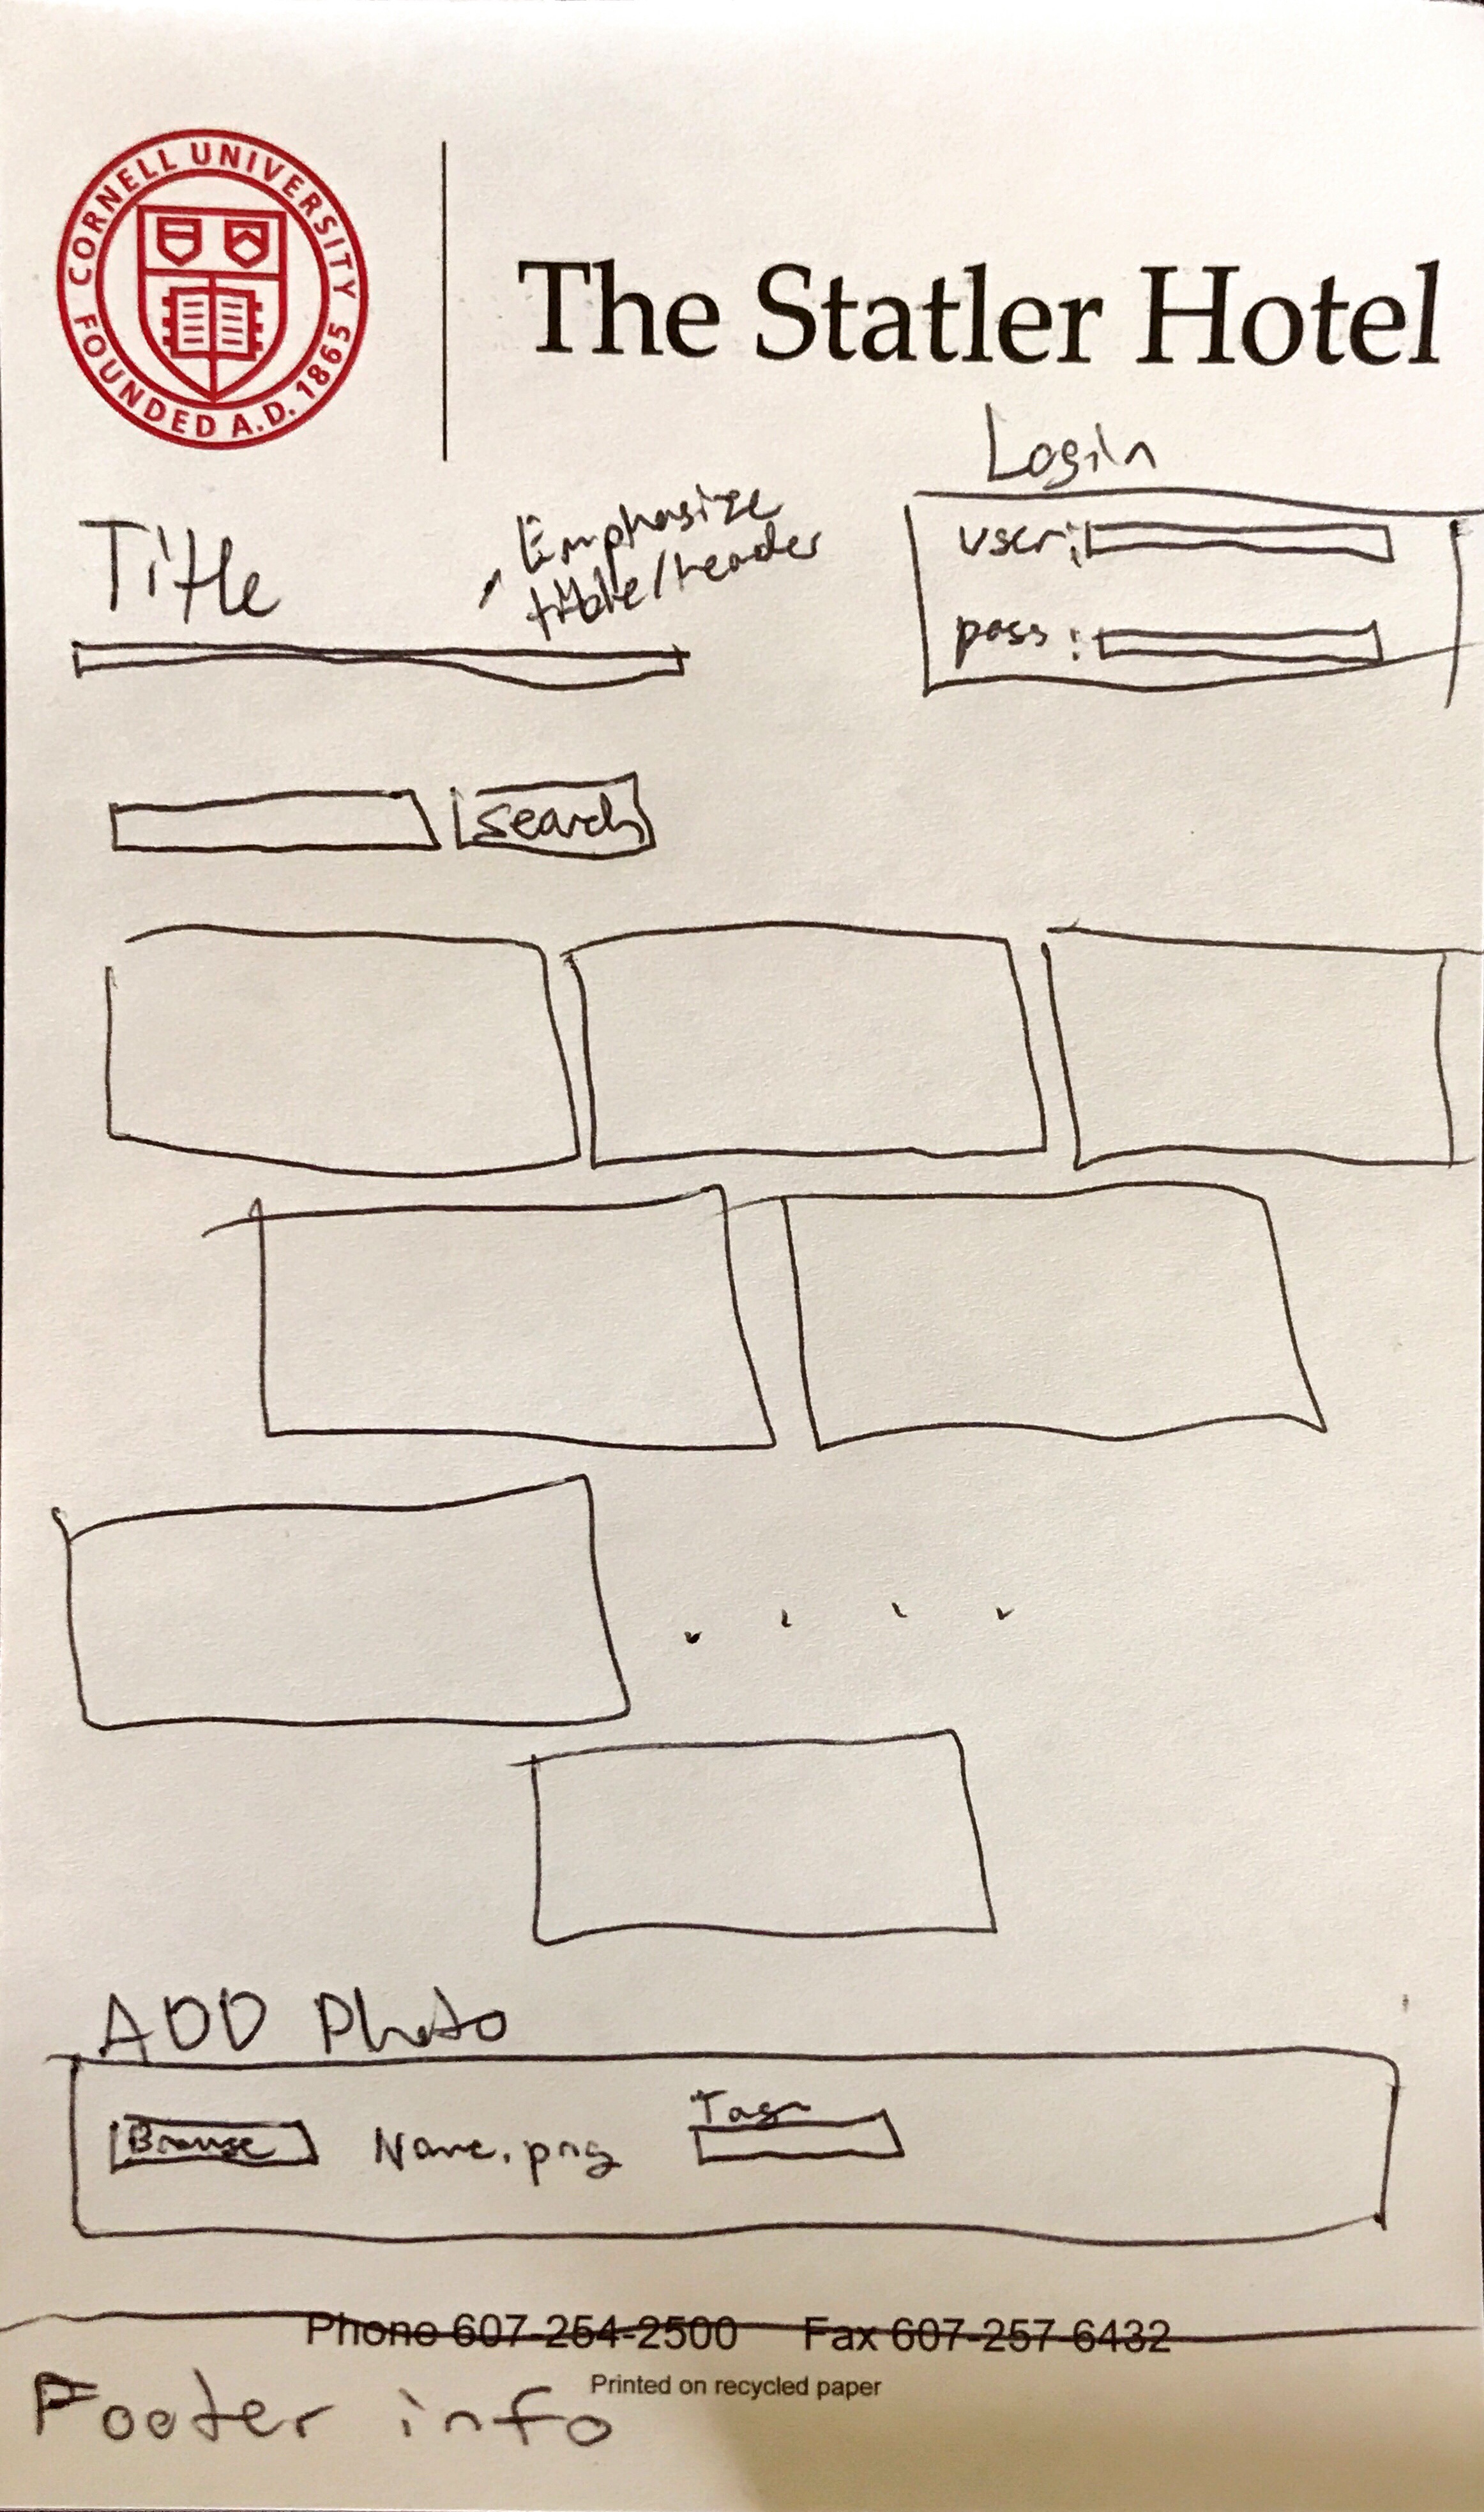 CORNELL UNIVERSITY
FOUNDED A.D. 1865
The Statler Hotel
Login
Title
Emphasize
title/header
user:
pass:
search
ADD Photo
Browse
Name.png
Tags
Phone 607-254-2500 Fax 607-257-6432
Printed on recycled paper
Footer info